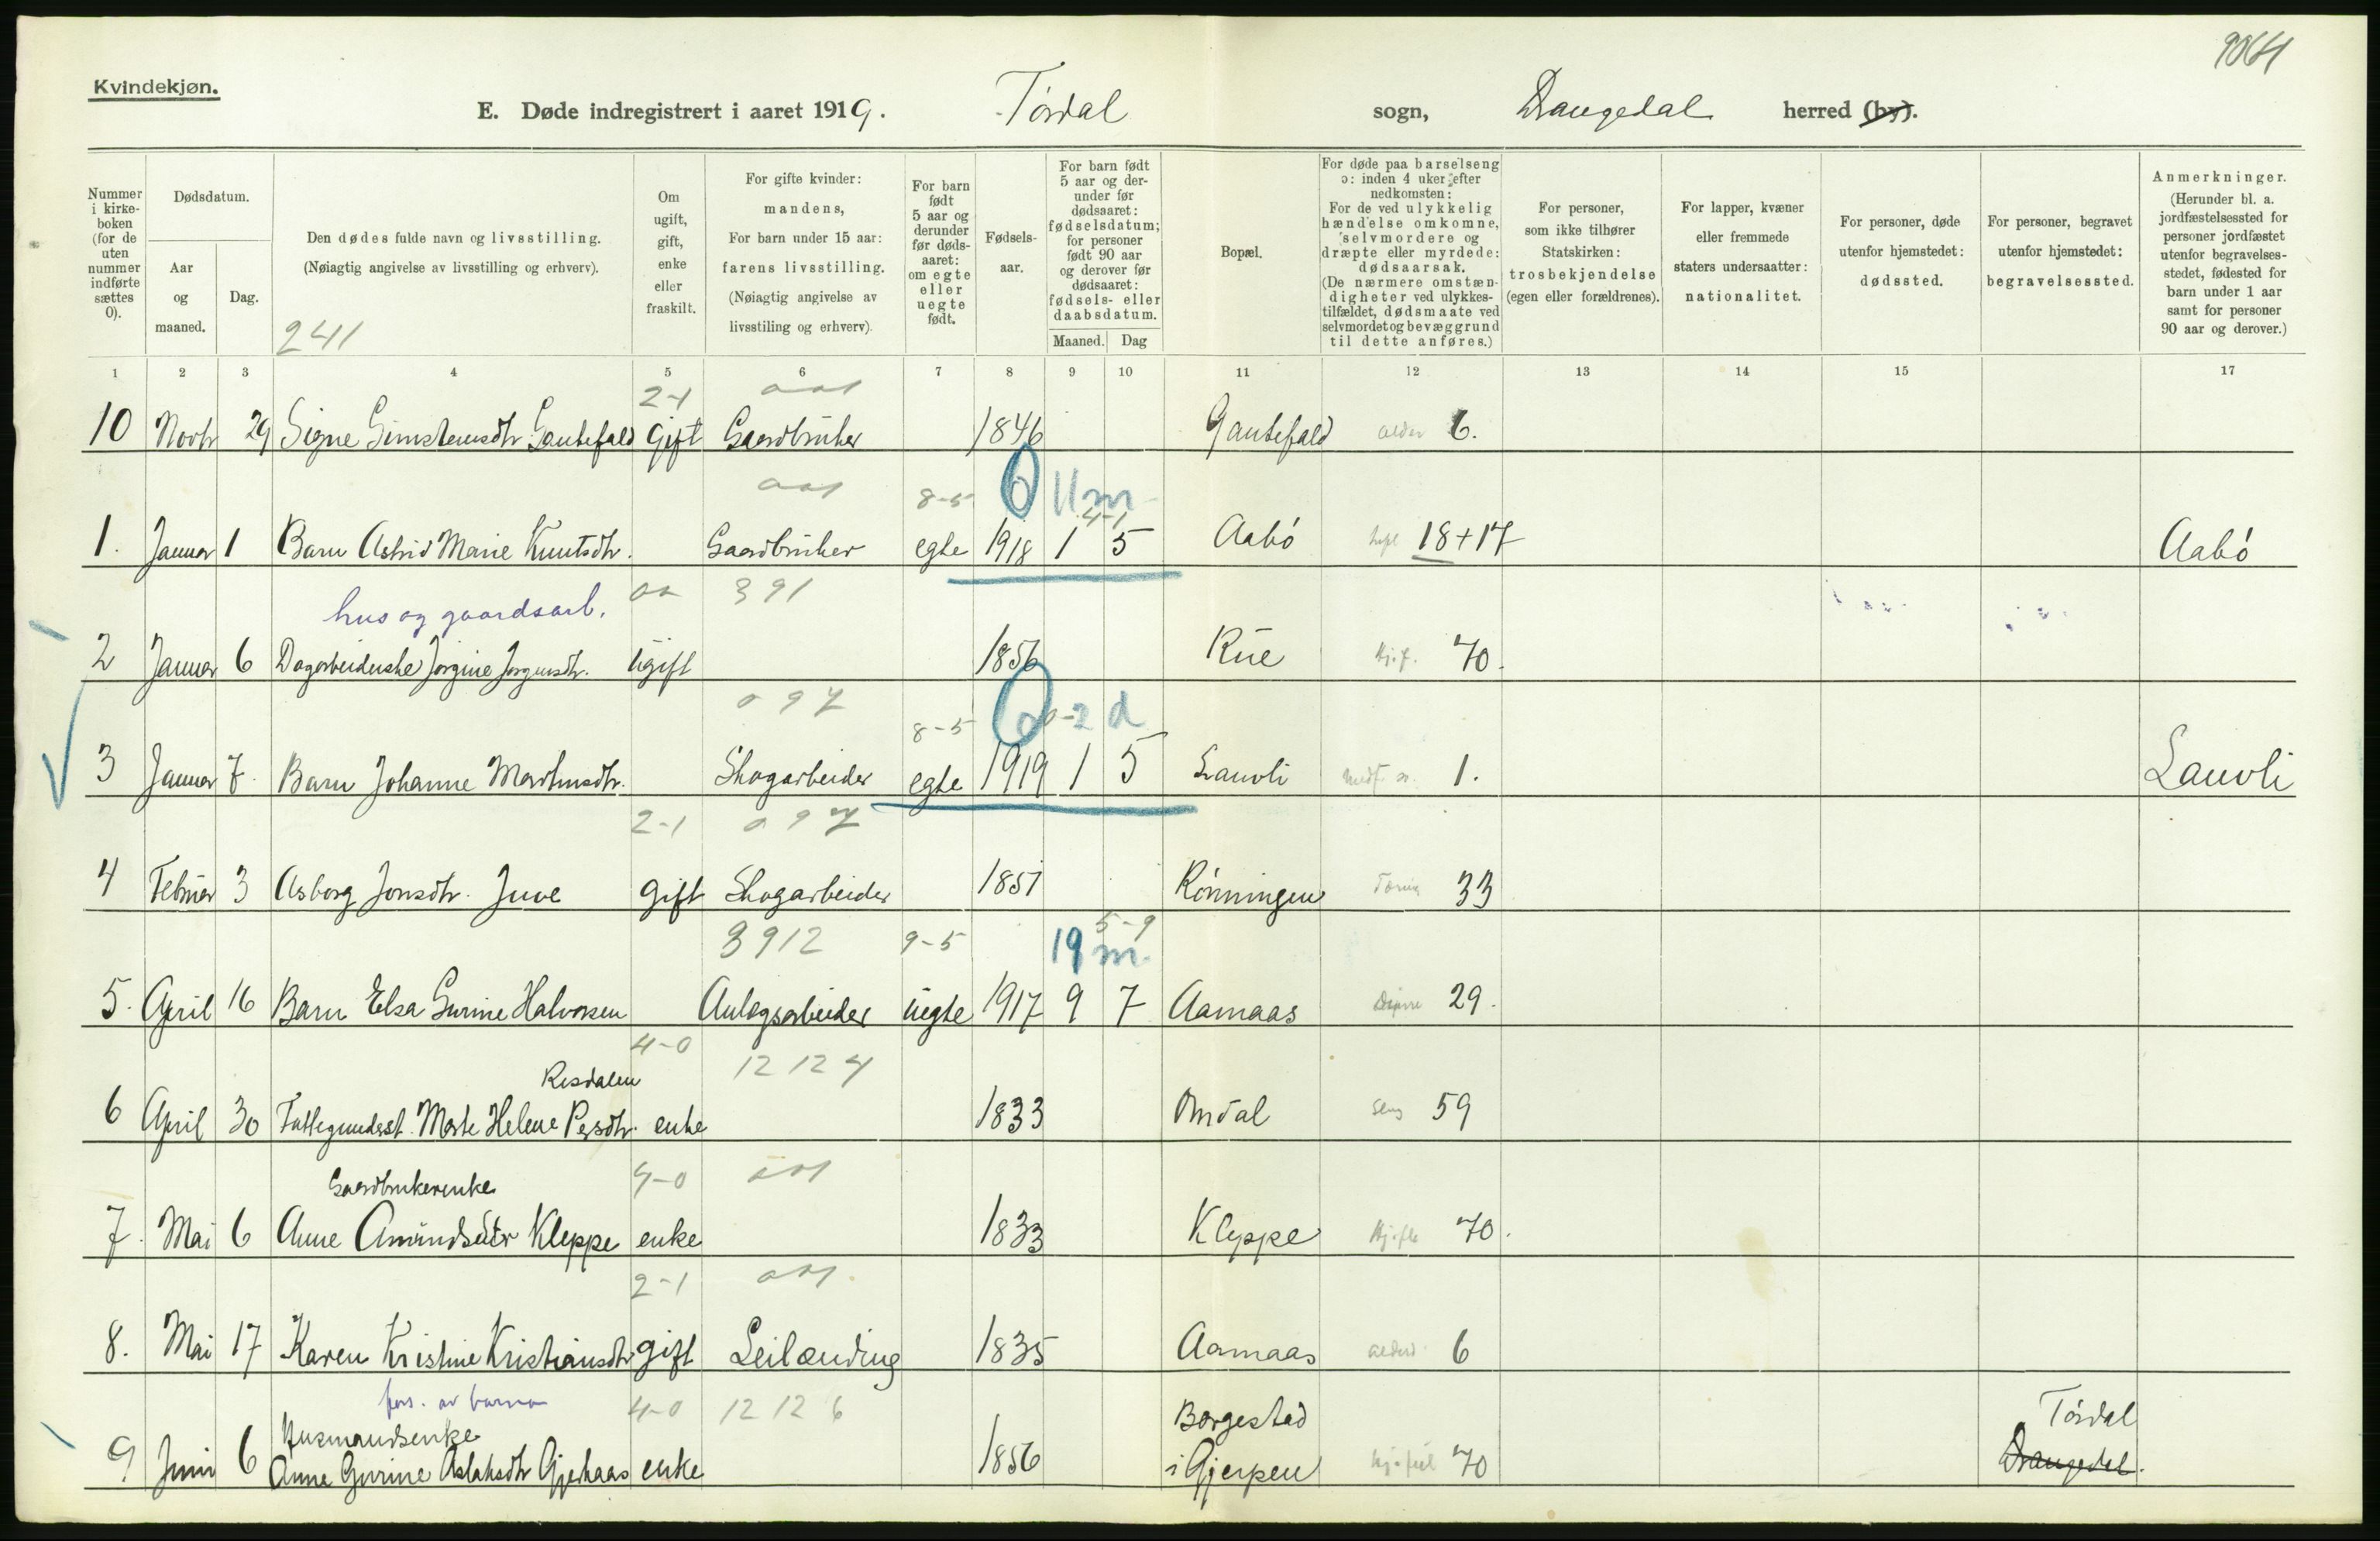 9064
Kvindekjøn.
E. Døde indregistrert i aaret 1919. Tórdal sogn, Drangedal herred (by).
Nummer i kirke- boken (for de uten nummer indførte sættes 0).
Dødsdatum.
Aar og maaned.
Dag.
Den dødes fulde navn og livsstilling.
(Nøiagtig angivelse av livsstilling og erhverv).
241
Om ugift, gift, enke eller fraskilt.
For gifte kvinder: mandens,
For barn under 15 aar: farens livsstilling.
(Nøiagtig angivelse av livsstiling og erhverv).
For barn født 5 aar og derunder før døds- aaret: om egte eller uegte født.
Fødsels- aar.
For barn født 5 aar og der- under før dødsaaret: fødselsdatum; for personer født 90 aar og derover før dødsaaret: fødsels- eller daabsdatum.
Maaned. Dag
Bopæl.
For døde paa barselseng ɔ: inden 4 uker efter nedkomsten:
For de ved ulykkelig hændelse omkomne, selvmordere og dræpte eller myrdede: dødsaarsak.
(De nærmere omstæn- digheter ved ulykkes- tilfældet, dødsmaate ved selvmord et og bevæggrund til dette anføres.)
For personer, som ikke tilhører Statskirken: trosbekjendelse (egen eller forældrenes).
For lapper, kvæner eller fremmede staters undersaatter: nationalitet.
For personer, døde utenfor hjemstedet: dødssted.
For personer, begravet utenfor hjemstedet: begravelsessted.
Anmerkninger.
(Herunder bl. a. jordfæstelsessted for personer jordfæstet utenfor begravelses- stedet, fødested for barn under 1 aar samt for personer 90 aar og derover.)
1 2 3 4 5 6 7 8 9 10 11 12 13 14 15 17
2-1
10 Novbr 29 Signe Gunstensdtr Gautefald Gift Gaardbruker 1846 Gautefald alder 6.
8-5 0 11 m
4-1
1. Januar 1 Barn Astrid Marie Knutsdtr. Gaardbruker egte 1918 1 5 Aabó 18+17 Aabó
391
hus og gaardsarb.
2 Januar 6 Dagarbeiderske Jorgine Jorgensdtr. ugift 1856 Rue Hj.f. 70.
097
8-5 0 0-2 d
3 Januar 7. Barn Johanne Martinsdtr. Skogarbeider egte 1919 1 5 Lauvli 1. Lauvli
2-1 097
4 Februar 3 Asborg Jonsdtr. Juve gift Skogarbeider 1851 Rónningen 33
3912 9-5 5-9
19 m.
5. April 16 Barn Elsa Gurine Halvorsen Anlægsarbeider uegte 1917 9 7 Aamaas 29.
4-0 12 12 4
Risdalen
6 April 30 Fattigunderst. Marte Helene Persdtr. enke 1833 Omdal 59
4-0
Gaardbrukerenke
7. Mai 6 Anne Amundsdtr Kleppe enke 1833 Kleppe 70.
2-1
8. Mai 17 Karen Kristine Kristiansdtr gift Leilænding 1835 Aamaas 6
fors. av barna 4-0 12 12 6
Husmandsenke Borgestad Tórdal
9 Juni 6 Anne Gurine Aslaksdtr Gjerhaas enke 1856 i Gjerpen 70 Drangedal.